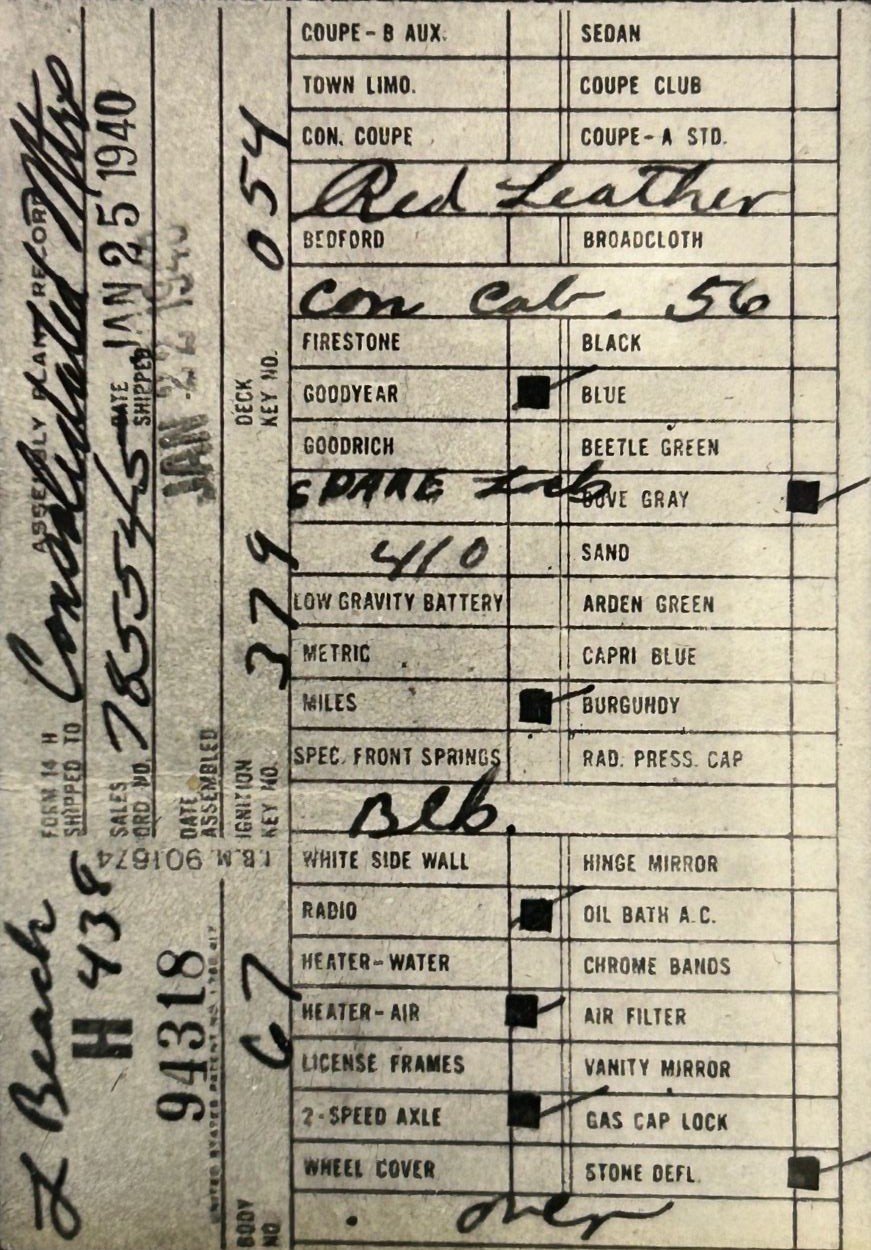 FORM 14 H
ASSEMBLY PLANT RECORD
SHIPPED TO Consolidated Mtrs
SALES ORD NO. 785545
DATE SHIPPED JAN 25 1940
DATE ASSEMBLED JAN 22 1940
I.B.M. 901674
IGNITION KEY NO. 379
DECK KEY NO. 054
L Beach
H 438
94318
BODY NO. 67
COUPE-B AUX. SEDAN
TOWN LIMO. COUPE CLUB
CON. COUPE COUPE-A STD.
Red Leather
BEDFORD BROADCLOTH
Con Cab. 56
FIRESTONE BLACK
GOODYEAR BLUE
GOODRICH BEETLE GREEN
SPARE DOVE GRAY
410 SAND
LOW GRAVITY BATTERY ARDEN GREEN
METRIC CAPRI BLUE
MILES BURGUNDY
SPEC. FRONT SPRINGS RAD. PRESS. CAP
Blb.
WHITE SIDE WALL HINGE MIRROR
RADIO OIL BATH A.C.
HEATER-WATER CHROME BANDS
HEATER-AIR AIR FILTER
LICENSE FRAMES VANITY MIRROR
2-SPEED AXLE GAS CAP LOCK
WHEEL COVER STONE DEFL.
over